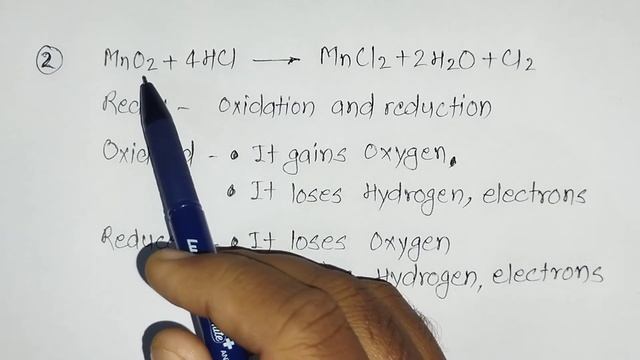 ② MnO2 + 4HCl → MnCl2 + 2H2O + Cl2
- Oxidation and reduction
- • It gains Oxygen.
• It loses Hydrogen, electrons
- • It loses Oxygen
Hydrogen, electrons